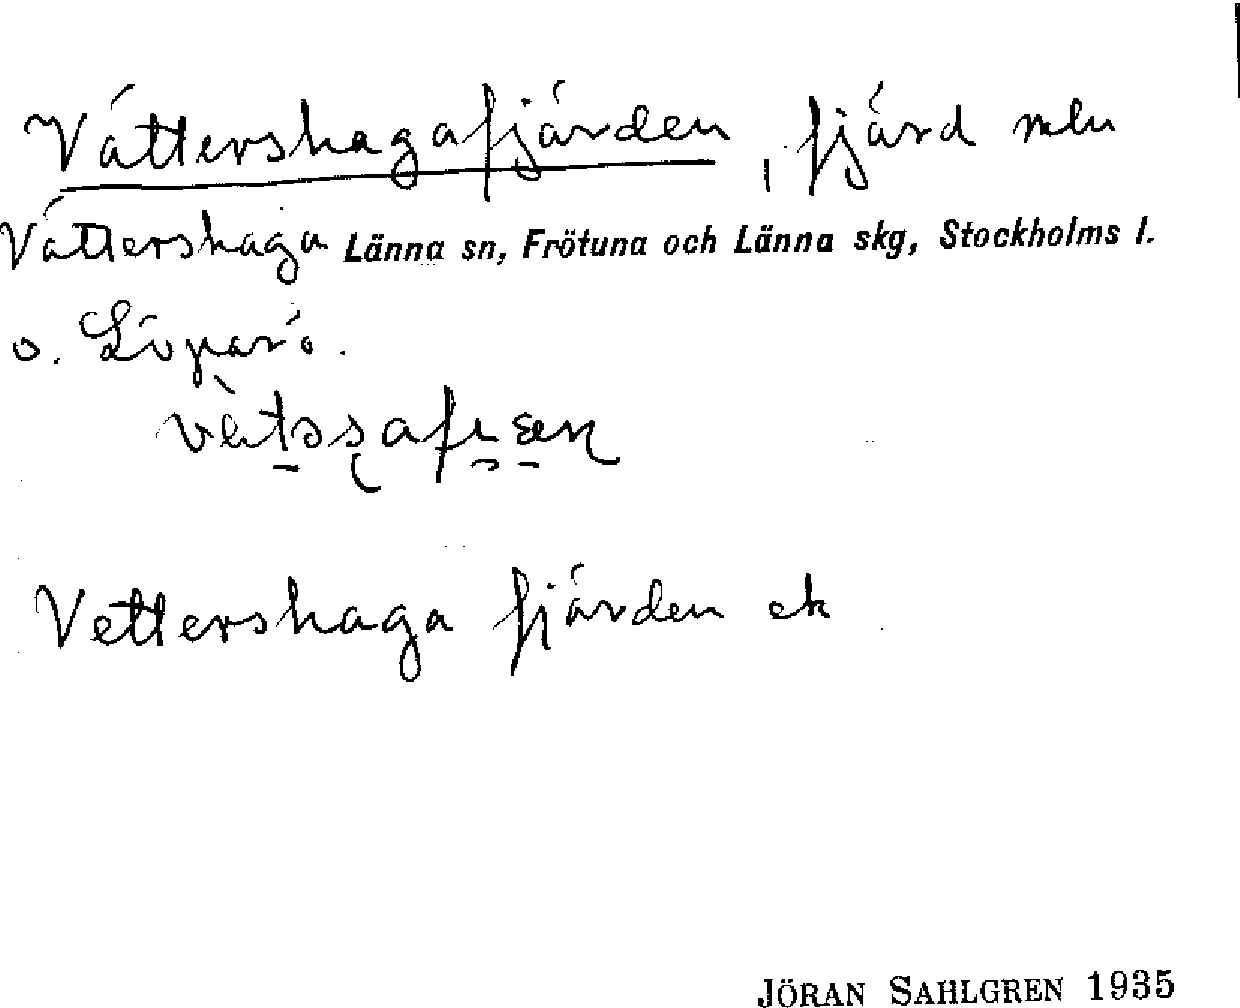 Vättershagafjärden, fjärd mln
Vättershaga Länna sn, Frötuna och Länna skg, Stockholms l.
o. Löparö.
Vettershaga fjärden ek
JÖRAN SAHLGREN 1935